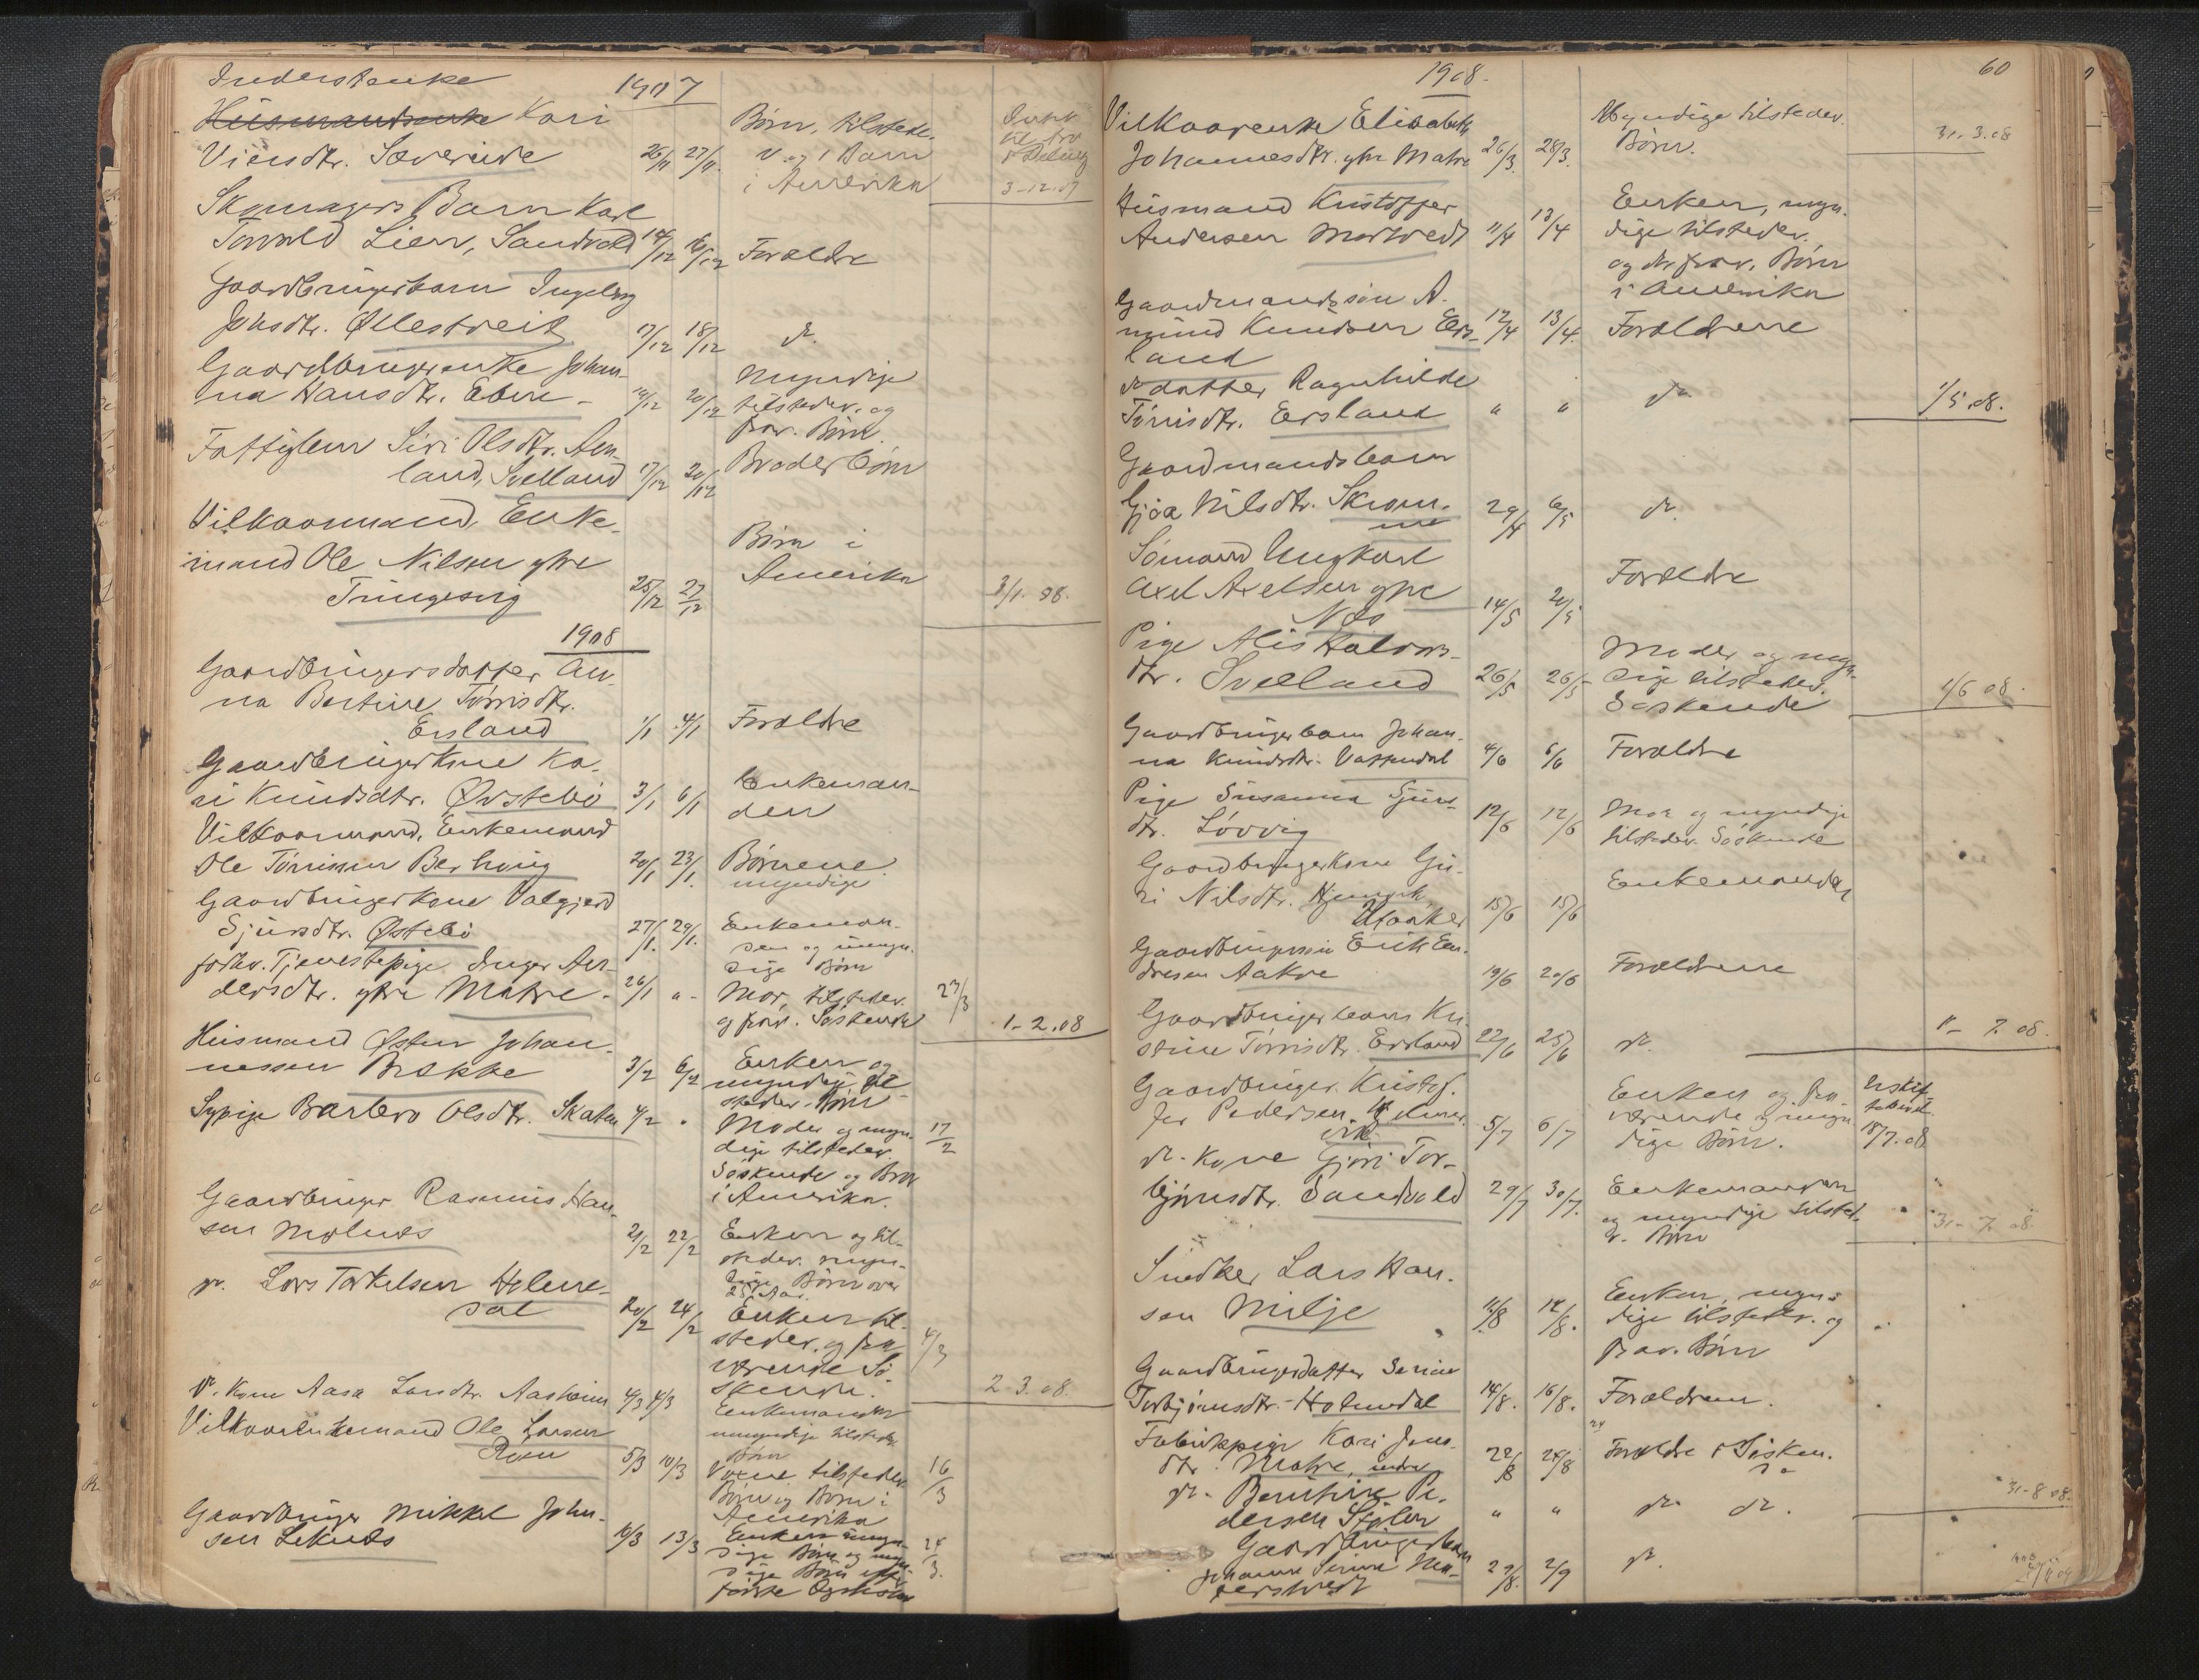 Inderstenke
1907
Husmandsenke Kari
Viensdtr. Sævereide 26/11 27/11.
Børn, tilstede-
v. og 1 Barn
i Amerika
3-12.07
Skomagers Barn Karl
Torvald Lien, Sandvold 14/12 16/12 Forældre
Gaardbrugerbarn Ingeborg
Johsdtr. Øllestveit 17/12 18/12 do.
Gaardbrugerenke Johan-
na Hansdtr. Ebne - 19/12 20/12
Myndige
tilstedev. og
frav. Børn.
Fattiglem Siri Olsdtr. Aen-
land, Svelland 17/12 20/12 Broderbørn
Vilkaarmand, Enke-
mand Ole Nilsen ytre
Tungesvig 25/12 27/12
Børn i
Amerika
3/1. 08.
1908
Gaardbrugersdatter An-
na Bertine Tørrisdtr.
Ersland 1/1 4/1 Forældre
Gaardbrugerkone Ka-
ri Knudsdtr. Østebø 3/1 6/1
Enkeman-
den
Vilkaarmand, Enkemand
Ole Tørrisen Berhoug 20/1 23/1.
Børnene
myndige
Gaardbrugerkone Valgjerd
Sjursdtr. Østebø 27/1. 29/1.
Enkeman-
den og umyn-
dige Børn
forhv. Tjenestepige Inger An-
dersdtr. ytre Matre - 26/1 " -
Mor, tilstedev.
og frav. Søskende
23/3
1-2.08
Husmand Østen Johan-
nessen Brække 3/2 6/2
Enken og
myndige til-
stedev. Børn
Sypige Barbro Olsdtr. Skaten 4/2 "
Moder og myn-
dige tilstedev.
Søskende og Bror
i Amerika.
17/2
Gaardbruger Rasmus Han-
sen Molnes 21/2 22/2
Enken og til-
stedev. myn-
dige Børn over
25 Aar.
do. Lars Torkelsen Helene-
dal 20/2 24/2
Enken til-
stedev. og fra-
værende Sø-
skende.
4/3
2.3.08.
do. Kone Aasa Larsdtr. Aasheim 4/3 4/3
Enkemanden
umyndige tilstedev.
Børn
Vilkaarenkemand Ole Larsen
Røen 5/3 10/3
Voxne tilstedev.
Børn og Børn i
Amerika
16/3
Gaardbruger Mikkel John-
sen Leknes 10/3 13/3
Enken umyn-
dige Børn og myn-
dige Børn efter
første Ægteskab
24/3.
1908.
60
Vilkaarenke Elisabeth
Johannesdtr. ytre Matre 26/3. 28/3.
Myndige tilstedev.
Børn.
31.3.08
Husmand Kristoffer
Andersen Mortvedt 11/4 13/4
Enken, myn-
dige tilstedev.
og do. frav. Børn
i Amerika
Gaardmandssøn A-
mund Knudsen Ers-
land 12/4 13/4. Forældrene
do datter Ragnhilde
Tørrisdtr. Ersland " " do.
1/5.08.
Gaardmandsbarn
Gjøa Nilsdtr. Skrom-
me 29/4 6/5 do.
Sømand Ungkarl
Axel Axelsen ytre
Nes 14/5 20/5 Forældre
Pige Alis Halvors-
dtr. Svelland 26/5 26/5
Moder og myn-
dige tilstedev.
Søskende
1/6 08.
Gaardbrugerbarn Johan-
na Knudsdtr. Vattendal 4/6 6/6 Forældre
Pige Susanna Sjurs-
dtr. Løvvig 12/6 12/6
Mor og myndige
tilstedev. Søskende
Gaardbrugerkone Gu-
ri Nilsdtr.
Utaaker 15/6 15/6 Enkemanden
Gaardbrugersøn Erik En-
dresen Aakre 19/6 20/6 Forældrene
Gaardbrugerbarn Kri-
stine Tørrisdtr. Ersland 22/6 25/6 do.
7.08.
Gaardbruger Kristof-
fer Pedersen
vik 5/7 6/7
Enken og fra-
værende myn-
dige Børn.
18/7.08
do. Kone Gjøri Tor-
bjørnsdtr. Sandvold 29/7 30/7.
Enkemanden
og myndige tilsted-
v. Børn
31- 7.08.
Snedker Lars Han-
sen Milje 11/8 12/8.
Enken, myn-
dige tilstedev. og
frav. Børn
Gaardbrugerdatter Serine
Torbjørnsdtr. Holmedal 14/8. 16/8. Forældrene.
Fabrikpige Kari Jens-
dtr. Matre, indre 22/8 24/8 Forældre & Søsken-
de
do. Berntine Pe-
dersen Stølen " " do. do.
31-8 08.
Gaardbrugerbarn
Johanne Serine Mu-
ferstvedt 29/8. 2/9 do.